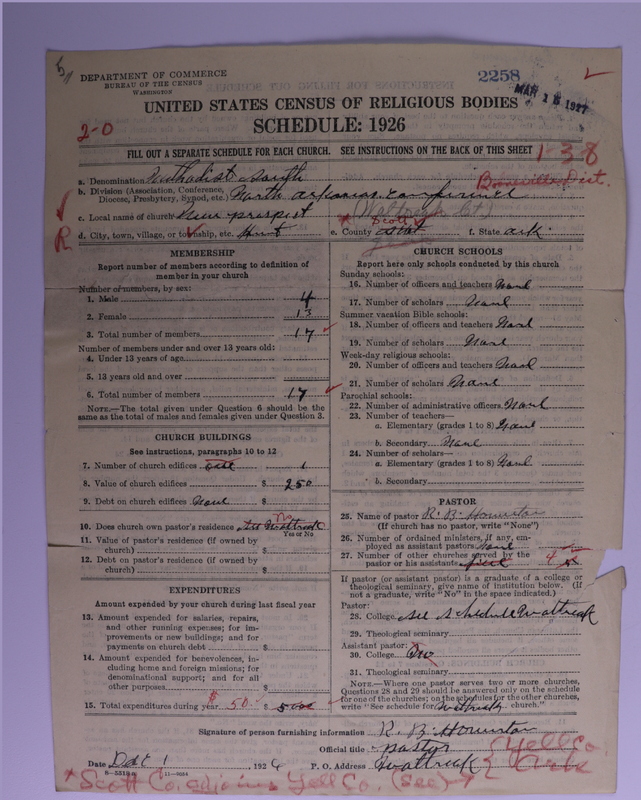 DEPARTMENT OF COMMERCE
BUREAU OF THE CENSUS
WASHINGTON
2258
MAR 18 1927
UNITED STATES CENSUS OF RELIGIOUS BODIES
SCHEDULE: 1926
2-0
FILL OUT A SEPARATE SCHEDULE FOR EACH CHURCH. SEE INSTRUCTIONS ON THE BACK OF THIS SHEET
1-38
a. Denomination Methodist South
Booneville Dist.
b. Division (Association, Conference, Diocese, Presbytery, Synod, etc.) North Arkansas Conference
c. Local name of church New prospect
R
d. City, town, village, or township, etc. e. County * Scott f. State ark
MEMBERSHIP
Report number of members according to definition of member in your church
Number of members, by sex:
1. Male 4
2. Female 13
3. Total number of members 17
Number of members under and over 13 years old:
4. Under 13 years of age
5. 13 years old and over
6. Total number of members 17
NOTE.—The total given under Question 6 should be the same as the total of males and females given under Question 3.
CHURCH BUILDINGS
See instructions, paragraphs 10 to 12
7. Number of church edifices 1
8. Value of church edifices $ 250
9. Debt on church edifices None $
10. Does church own pastor's residence No
Yes or No
11. Value of pastor's residence (if owned by church) $
12. Debt on pastor's residence (if owned by church) $
EXPENDITURES
Amount expended by your church during last fiscal year
13. Amount expended for salaries, repairs, and other running expenses; for improvements or new buildings; and for payments on church debt $
14. Amount expended for benevolences, including home and foreign missions; for denominational support; and for all other purposes $
15. Total expenditures during year $ 50.
CHURCH SCHOOLS
Report here only schools conducted by this church
Sunday schools:
16. Number of officers and teachers None
17. Number of scholars None
Summer vacation Bible schools:
18. Number of officers and teachers None
19. Number of scholars None
Week-day religious schools:
20. Number of officers and teachers None
21. Number of scholars None
Parochial schools:
22. Number of administrative officers None
23. Number of teachers—
a. Elementary (grades 1 to 8) None
b. Secondary None
24. Number of scholars—
a. Elementary (grades 1 to 8) None
b. Secondary
PASTOR
25. Name of pastor R. B.
(If church has no pastor, write "None")
26. Number of ordained ministers, if any, employed as assistant pastors None
27. Number of other churches served by the pastor or his assistants 4
If pastor (or assistant pastor) is a graduate of a college or theological seminary, give name of institution below. (If not a graduate, write "No" in the space indicated.)
Pastor:
28. College See schedule Waltreak
29. Theological seminary
Assistant pastor:
30. College
31. Theological seminary
NOTE.—Where one pastor serves two or more churches, Questions 28 and 29 should be answered only on the schedule for one of the churches; on the schedules for the other churches, write "See schedule for Waltreak church."
Signature of person furnishing information R. B.
Official title pastor
Date Dec 1, 1926 P. O. Address Waltreak
Yell Co
8-5319a 11-8084
* Scott Co. adjoins Yell Co. (see)